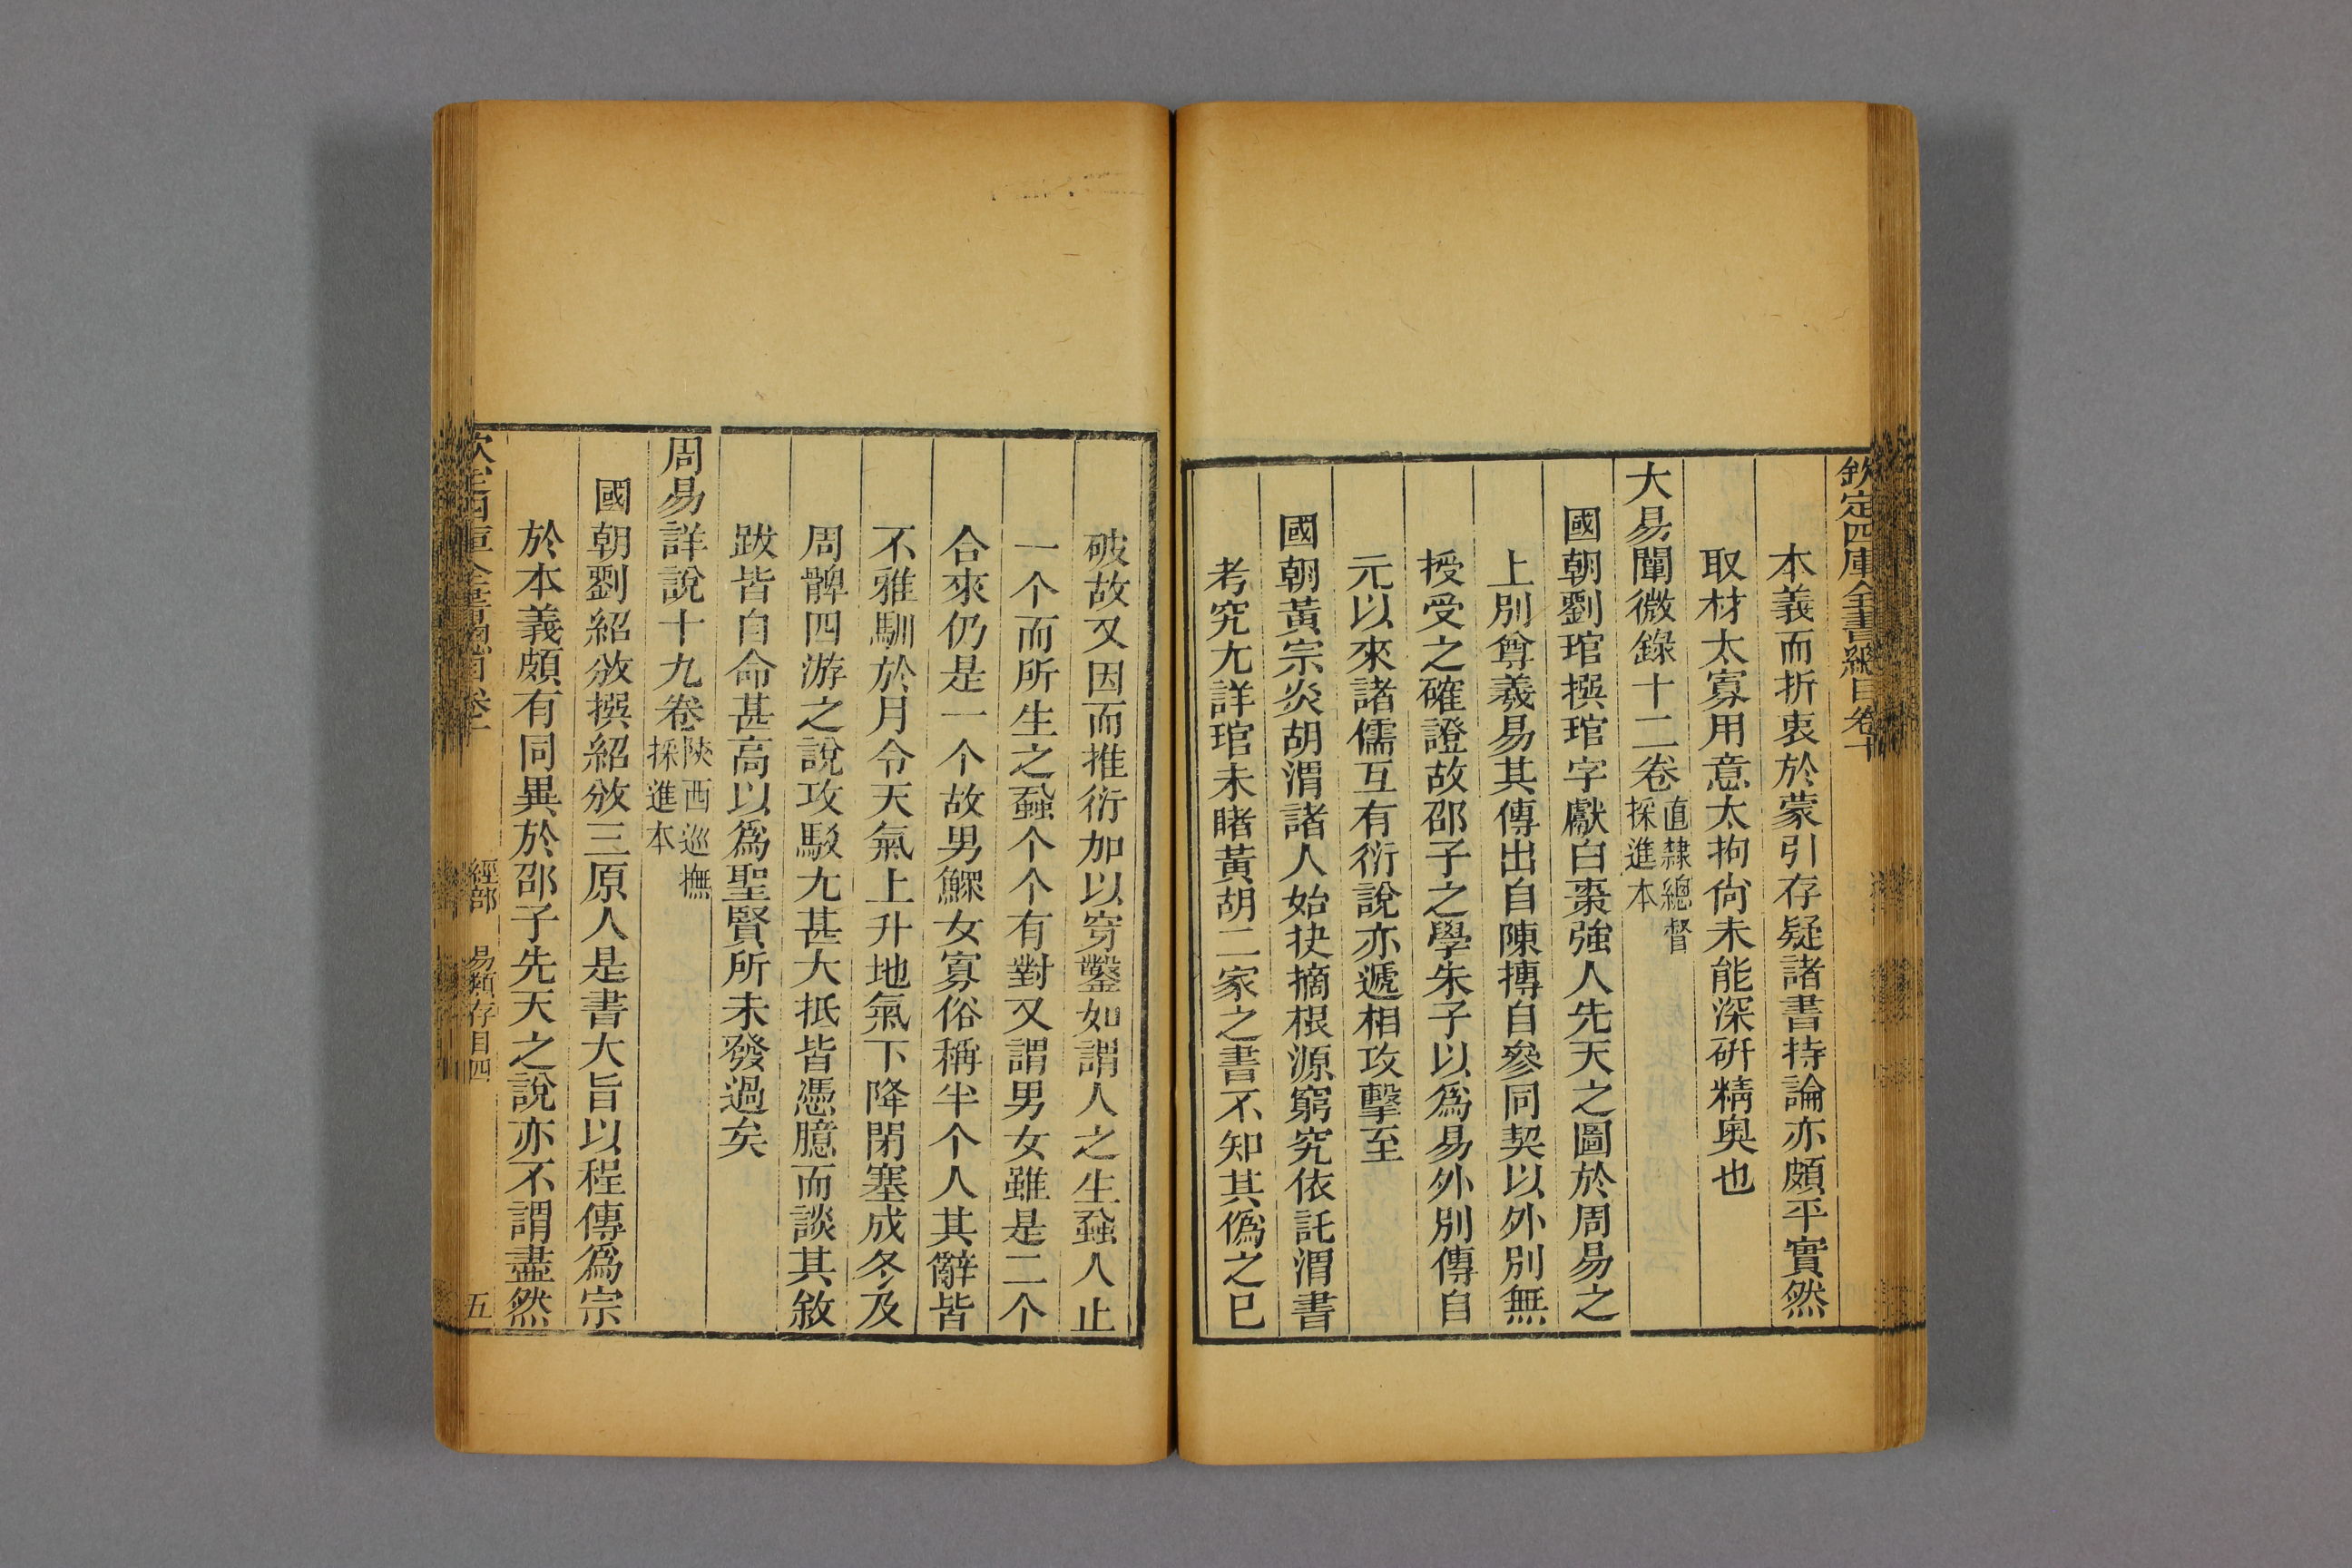 欽定四庫全書總目卷十
本義而折衷於蒙引存疑諸書持論亦頗平實然
取材太寡用意太拘尙未能深硏精奧也
大易闡微錄十二卷直隸總督採進本
國朝劉琯撰琯字獻白棗強人先天之圖於周易之
上別尊羲易其傳出自陳摶自參同契以外別無
授受之確證故邵子之學朱子以爲易外別傳自
元以來諸儒互有衍說亦遞相攻擊至
國朝黃宗炎胡渭諸人始抉摘根源窮究依託渭書
考究尢詳琯未睹黃胡二家之書不知其僞之已
破故又因而推衍加以穿鑿如謂人之生蝨人止
一个而所生之蝨个个有對又謂男女雖是二个
合來仍是一个故男鰥女寡俗稱半个人其辭皆
不雅馴於月令天氣上升地氣下降閉塞成冬及
周髀四游之說攻駁尢甚大抵皆憑臆而談其敘
跋皆自命甚高以爲聖賢所未發過矣
周易詳說十九卷陝西巡撫採進本
國朝劉紹攽撰紹攽三原人是書大旨以程傳爲宗
於本義頗有同異於邵子先天之說亦不謂盡然
欽定四庫全書總目卷十 經部 易類存目四 五